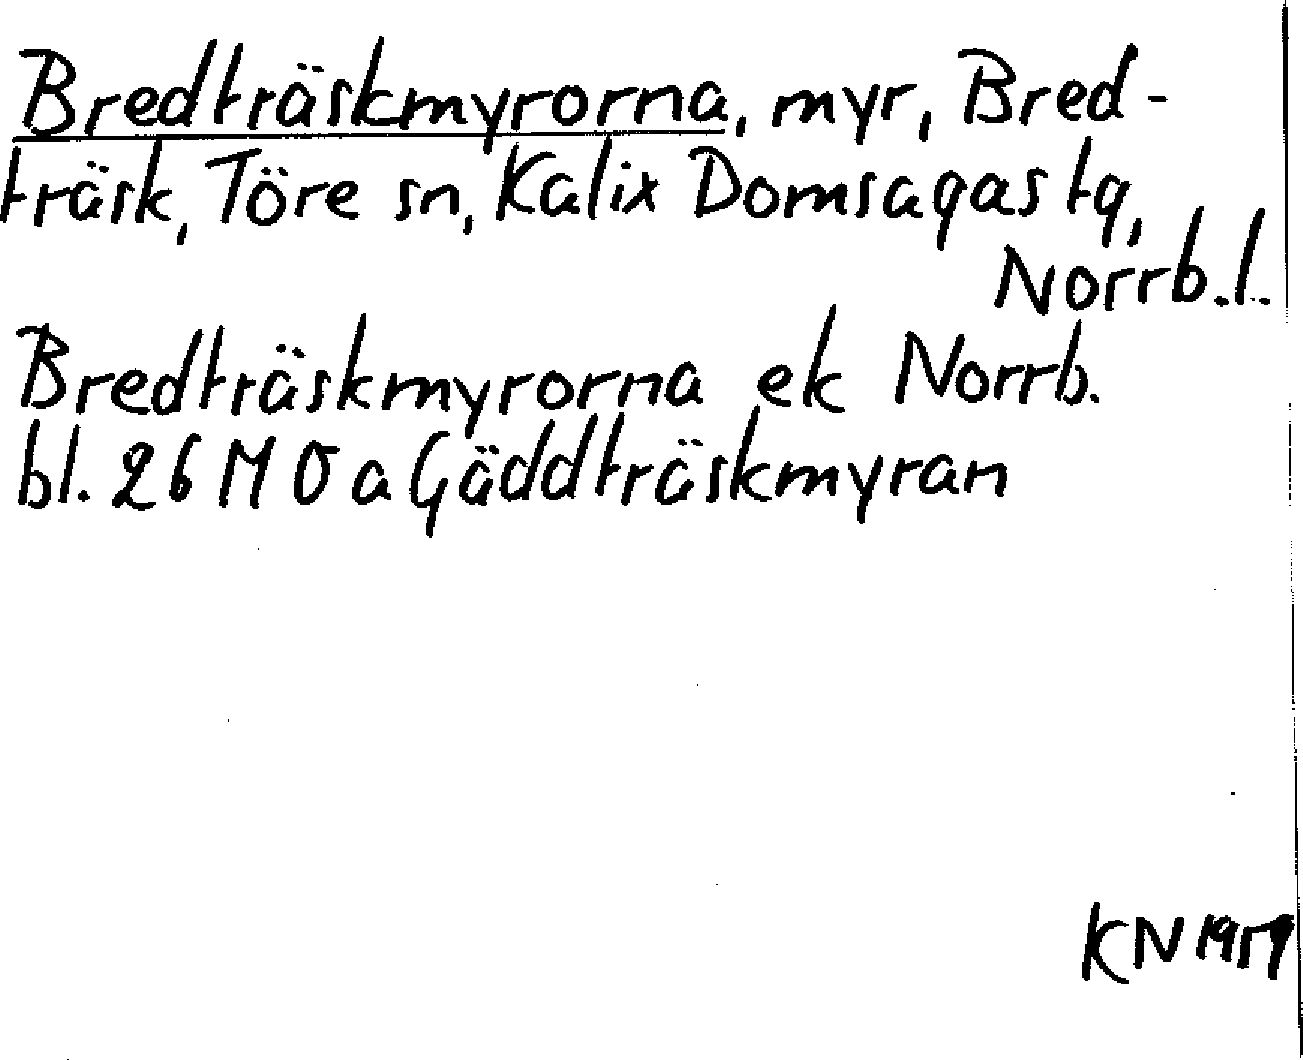 Bredträskmyrorna, myr, Bred-
träsk, Töre sn, Kalix Domsagas tg,
Norrb.l.
Bredträskmyrorna ek Norrb.
bl. 26 M O a Gäddträskmyran
KN